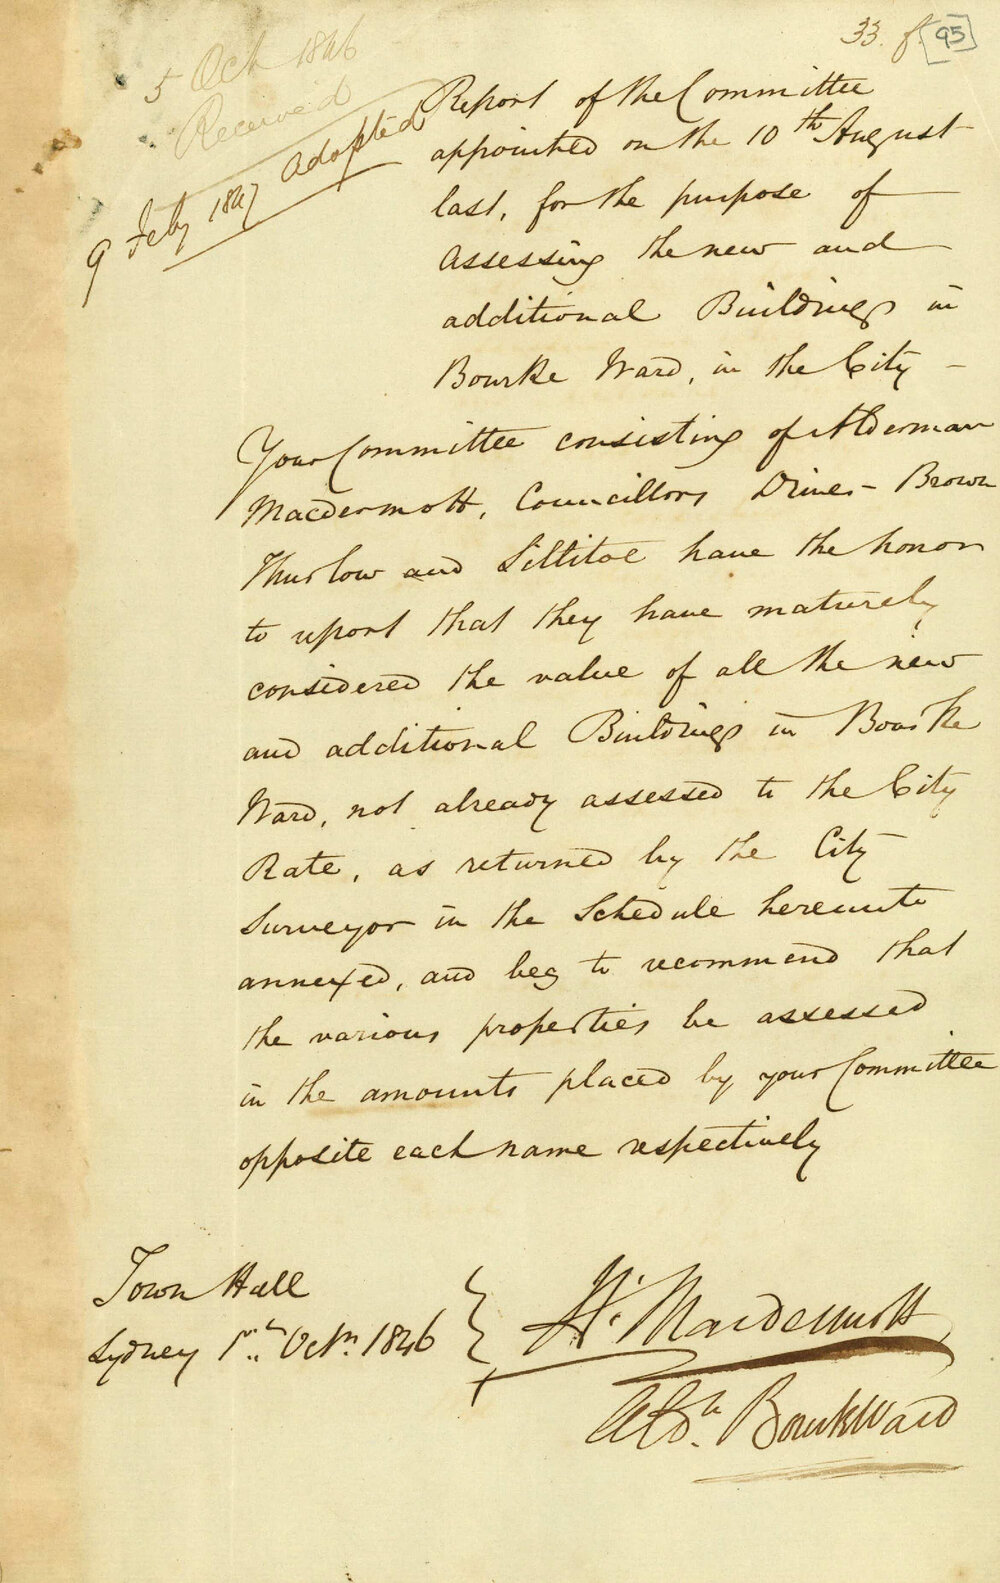 33. f. [95]
5 Oct 1846
Received
9 Feby 1847 adopted
Report of the Committee
appointed on the 10th August
last, for the purpose of
assessing the new and
additional Buildings in
Bourke Ward, in the City –
Your Committee consisting of Alderman
Macdermott, Councillors Driver – Brown
Thurlow and Sillitoe have the honor
to report that they have maturely
considered the value of all the new
and additional Buildings in Bourke
Ward, not already assessed to the City
Rate, as returned by the City
Surveyor in the Schedule hereunto
annexed, and beg to recommend that
the various properties be assessed
in the amounts placed by your Committee
opposite each name respectively
Town Hall
Sydney 1st Octr. 1846
H. Macdermott
Aldn. Bourk Ward